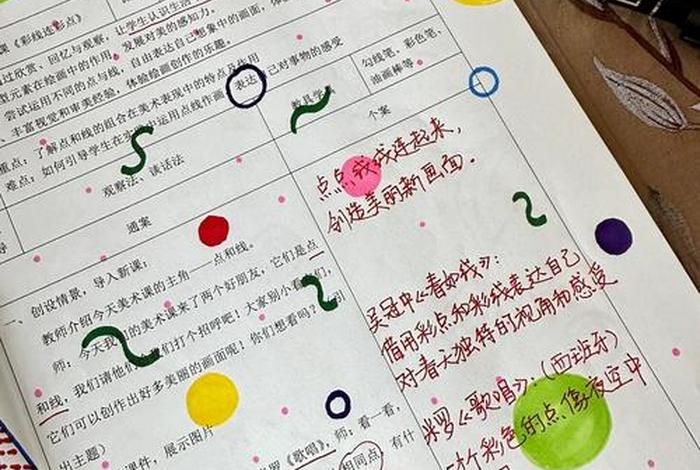 课《彩线连彩点》
过欣赏、回忆与观察,让学生认识生活
型元素在绘画中的作用,发展对美的感知力。
尝试运用不同的点与线,自由表达自己想象中的画面,体
、丰富视觉和审美经验,体验绘画创作的乐趣。
勾线笔、彩色笔、
油画棒等
重点:了解点和线的组合在美术表现中的特点及作用
难点:如何引导学生在 运用点线作画 表达 己对事物的感受
教具学
个案
观察法、谈话法
通案
点点线线连起来,
创造美丽新画面。
一、创设情景,导入新课:
教师介绍今天美术课的主角——点和线。
师:今天我们的美术课来了两个好朋友,它们是点
和线,我们请他 们打个招呼吧!大家别小看 们,
它们可以创作出好多美丽的画面呢!你们想看吗?
出主题)
课件,展示图片
罗《歌唱》,师:看一看,
相同点,有什
吴冠中《春如线》:
借用彩点和彩线表达自己
对春天独特的视角和感受
米罗《歌唱》:(西班牙)
彩色的点像夜空中